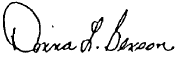 Donna L. Benson